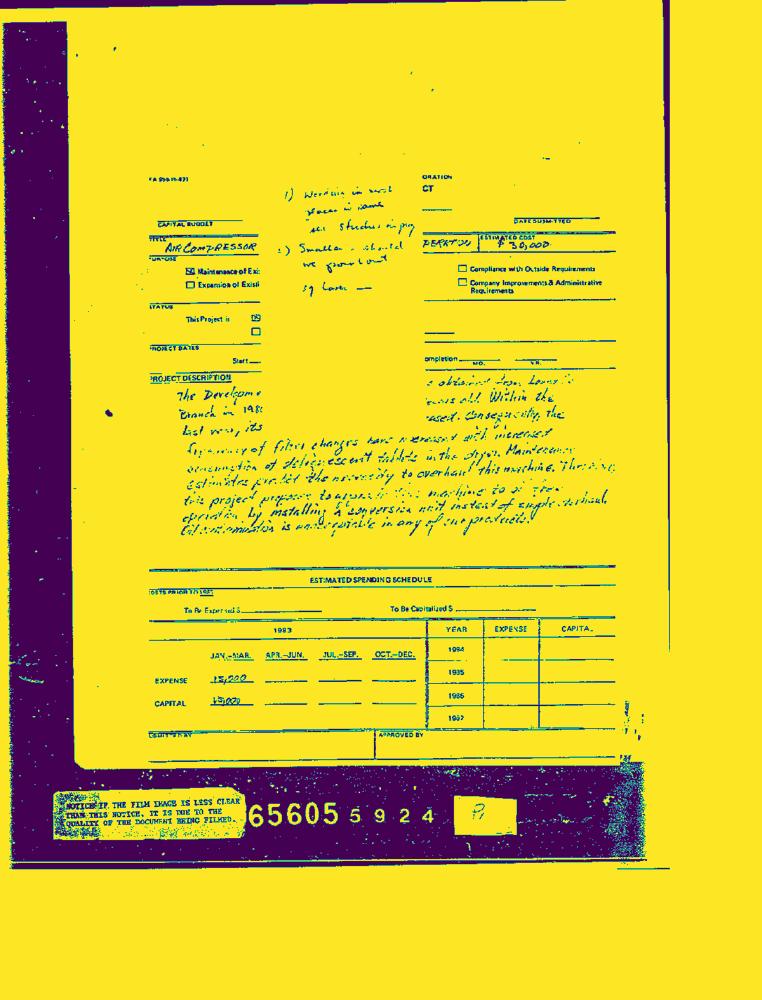 ORATION
CT
1) Working in
place is same
studies in
2) Smaller - should
we
CAPITAL BUDGET
DATE SUBMITTED
TITLE
AIR COMPRESSOR
ESTIMATED COST
$ 30,000
PURPOSE
Maintenance of Exi
Compliance with Outside Requirements
Expansion of Existi
Company Improvements & Administrative
Requirements
STATUS
This Project is
PROJECT DATES
Start
ompletion
MO.
YR.
PROJECT DESCRIPTION
The Developme
obtained from
Branch in 198
years old. Within the
last year, its
eased. Consequently, the
frequency of filter changes have increased with increased
consumption of deliquescent tablets in the dryer. Maintenance
estimates predict the necessity to overhaul this machine. Therefore,
this project proposes to this machine to oil free
operation by installing a conversion unit instead of simple overhaul.
Oil contamination is unacceptable in any of our products.
ESTIMATED SPENDING SCHEDULE
COSTS PRIOR TO 1983
To Be Expensed $
To Be Capitalized $
1983
YEAR EXPENSE CAPITAL
JAN.-MAR. APR.-JUN. JUL.-SEP. OCT.-DEC.
1984
EXPENSE 15,000
1985
CAPITAL 15,000
1986
1987
SUBMITTED BY
APPROVED BY
NOTICE IF THE FILM IMAGE IS LESS CLEAR
THAN THIS NOTICE, IT IS DUE TO THE
QUALITY OF THE DOCUMENT BEING FILMED.
65605 5924